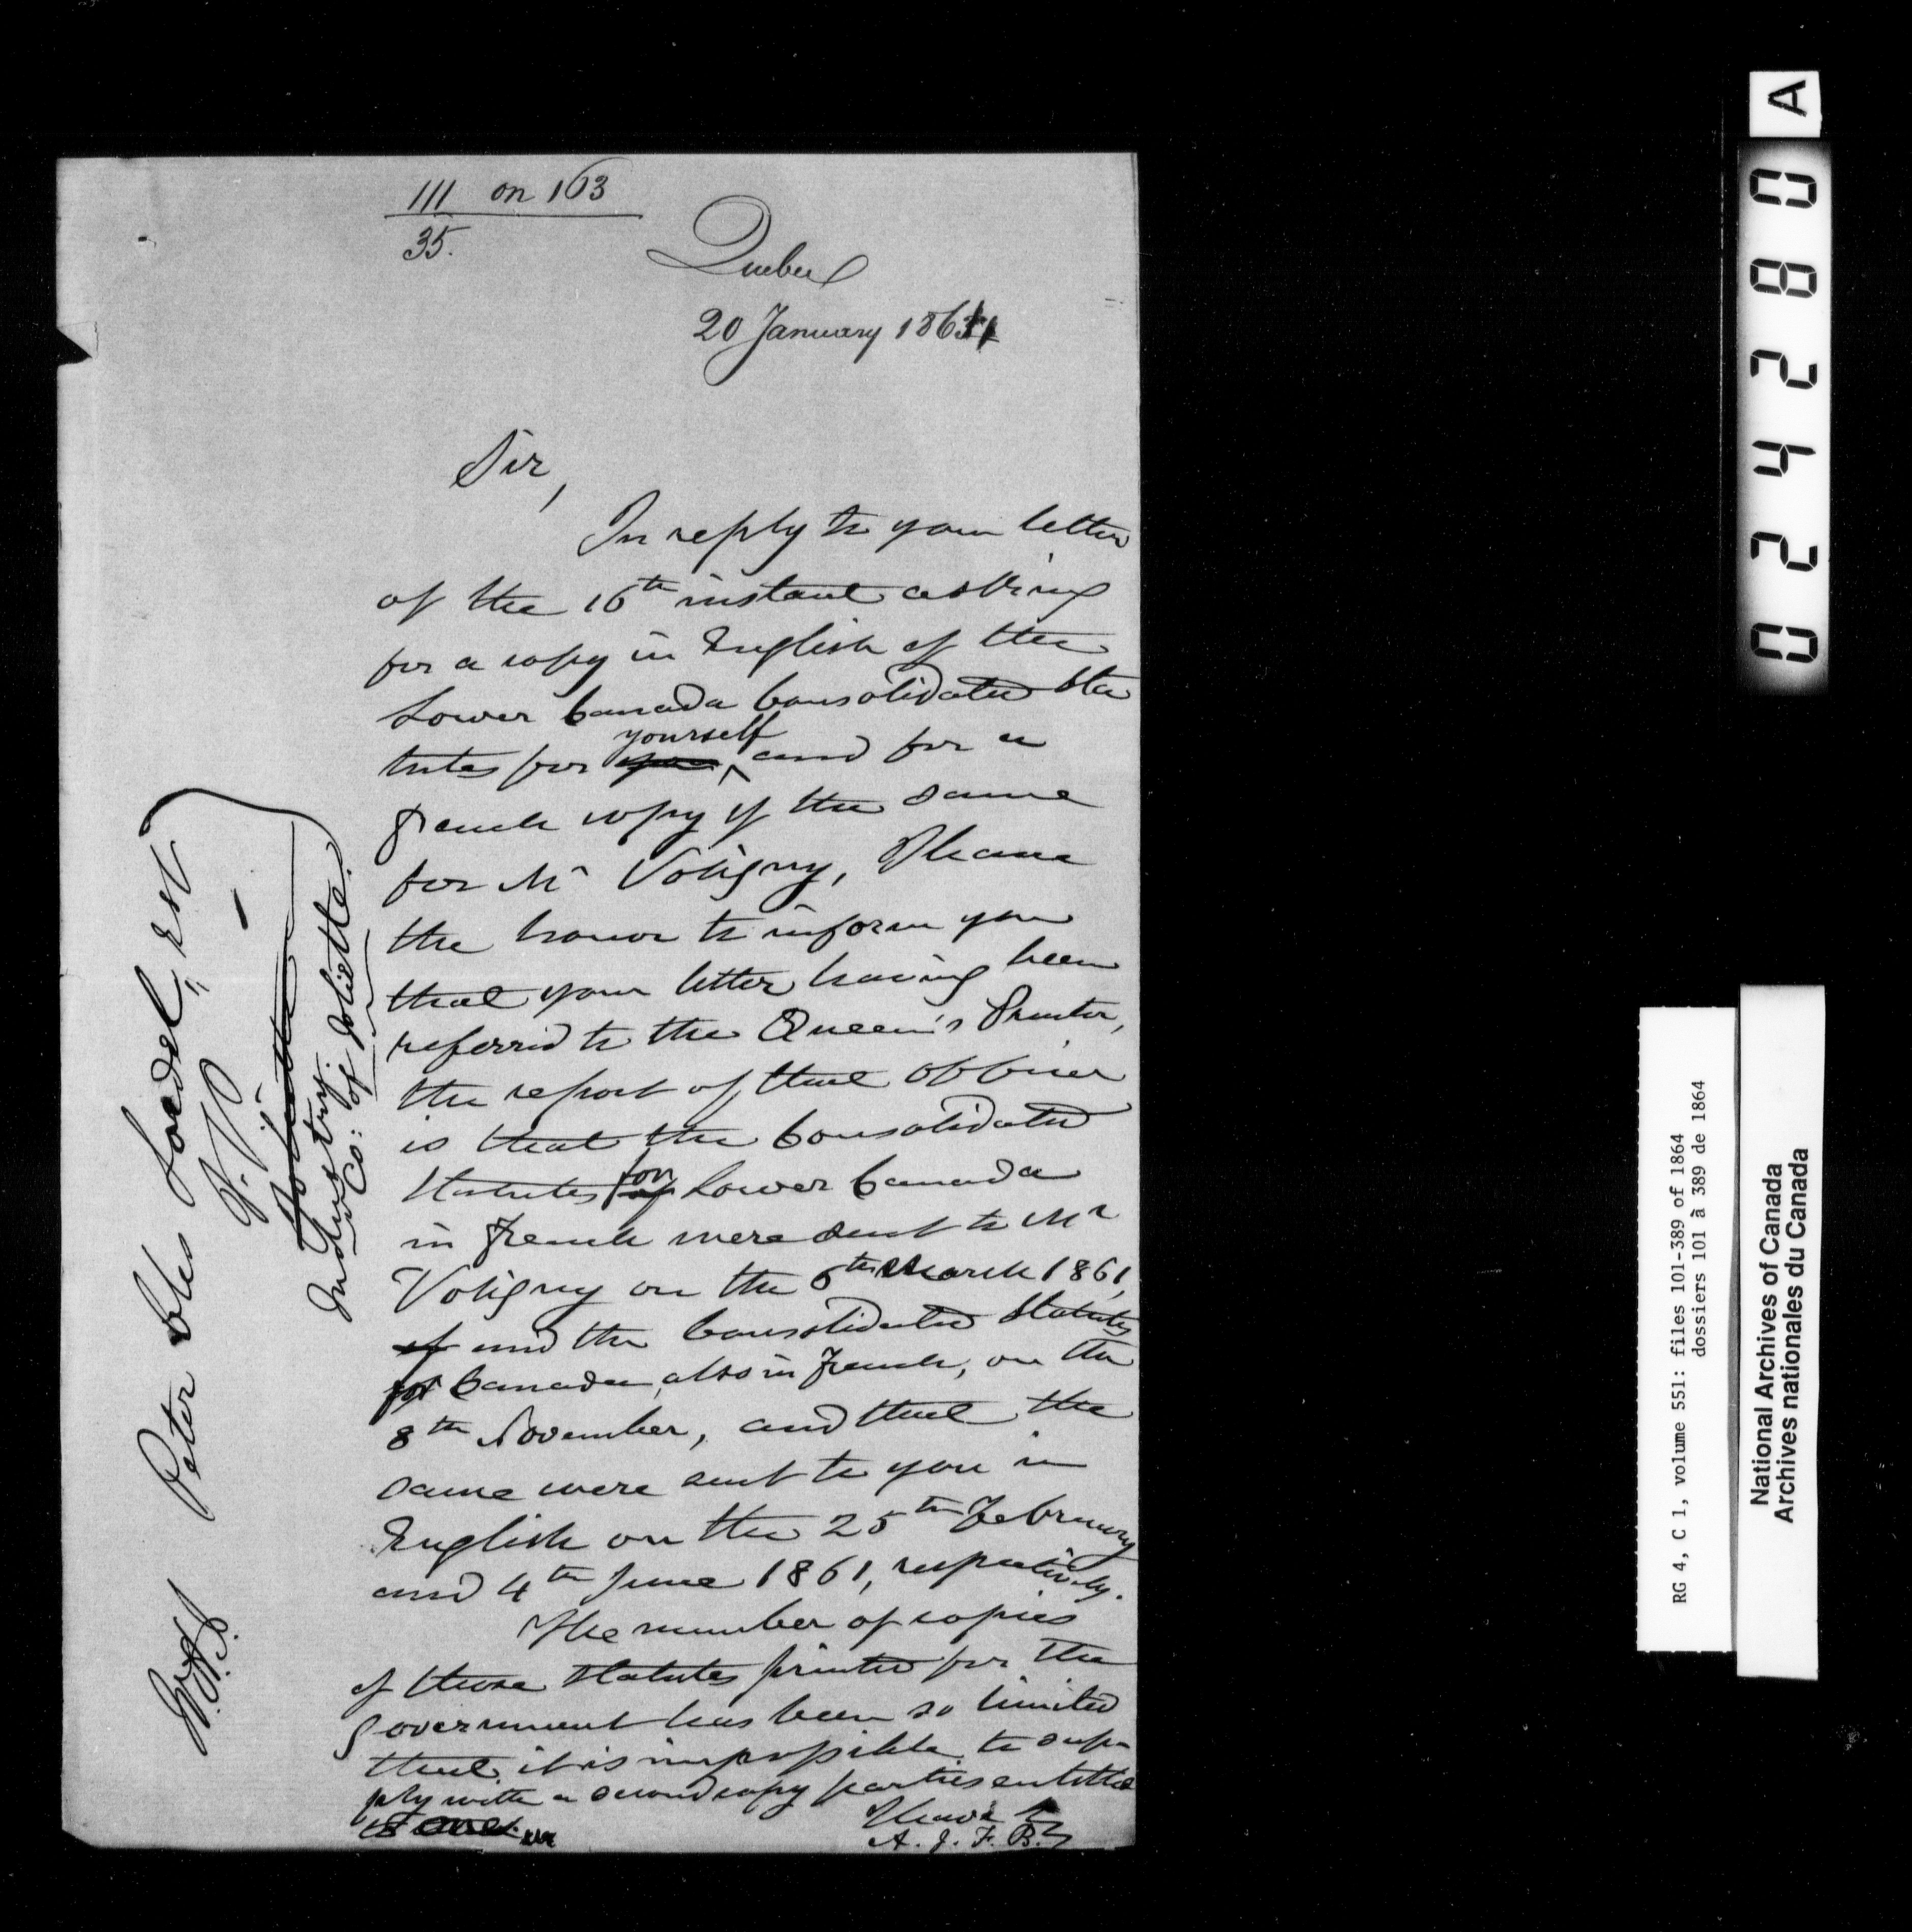 111 on 163
35.
Quebec
20 January 1864
Sir,
In reply to your letter
of the 16th instant asking
for a copy in English of the
Lower Canada Consolidated Sta
tutes for you yourself and for a
french copy of the same
for Mr Voligny, I have
the honor to inform you
that your letter having been
referred to the Queen's Printer,
the report of that officer
is that the Consolidated
Statutes of for Lower Canada
in French were sent to Mr
Voligny on the 6th March 1861,
of and the Consolidated Statutes
for Canada, also in French, on the
8th November, and that the
same were sent to you in
English on the 25th February
and 4th June 1861, respectively.
The number of copies
of those statutes printed for the
Government has been so limited
that it is impossible to sup
ply with a second copy parties entitled
to one.
I have &c
A. J. F. B.
Peter Chs Loedel, Esq
J. P.
Joliette
Industry.
Co: of Joliette.
A
024280
RG 4, C 1, volume 551: files 101-389 of 1864
dossiers 101 à 389 de 1864
National Archives of Canada
Archives nationales du Canada